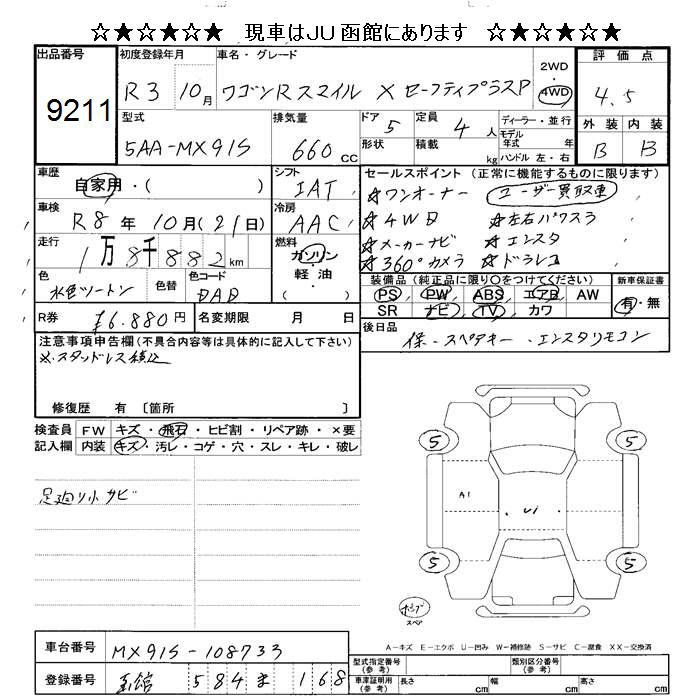 ☆★☆★☆ 現車はJU函館にあります ☆★☆★☆
出品番号 初度登録年月 車名・グレード 2WD 評価点
9211 R3 10月 ワゴンRスマイル X セーフティプラスP 4WD 4.5
型式 排気量 ドア 定員 ディーラー・並行 外装 内装
5AA-MX91S 660cc 5 4人 モデル年式 年 B B
形状 積載 kg ハンドル 左・右
車歴 シフト セールスポイント(正常に機能するものに限ります)
自家用・( ) IAT ☆ワンオーナー ユーザー買取車
車検 冷房 ☆4WD ☆左右パワスラ
R8年10月(21日) AAC ☆メーカーナビ ☆エンスタ
走行 燃料 ☆360°カメラ ☆ドラレコ
1万8千882km ガソリン・軽油・( )
色 色替 色コード 装備品(純正品に限り○をつけてください) 新車保証書
水色ツートン DAD PS PW ABS エアB AW 有・無
SR ナビ TV カワ
R券 ¥6.880円 名変期限 月 日 後日品
保・スペアキー・エンスタリモコン
注意事項申告欄(不具合内容等は具体的に記入して下さい)
※スタッドレス積込
修復歴 有 〔箇所 〕
検査員 FW キズ・飛石・ヒビ割・リペア跡・×要
記入欄 内装 キズ・汚レ・コゲ・穴・スレ・キレ・破レ
足廻り小サビ
5 5
A1 U1
5 5
スペア
A-キズ E-エクボ U-凹み W-補修跡 S-サビ C-腐食 XX-交換済
車台番号 MX91S-108733 型式指定番号(参考) 類別区分番号(参考)
登録番号 函館 584 ま 168 車庫証明用(参考) 長さ cm 幅 cm 高さ cm